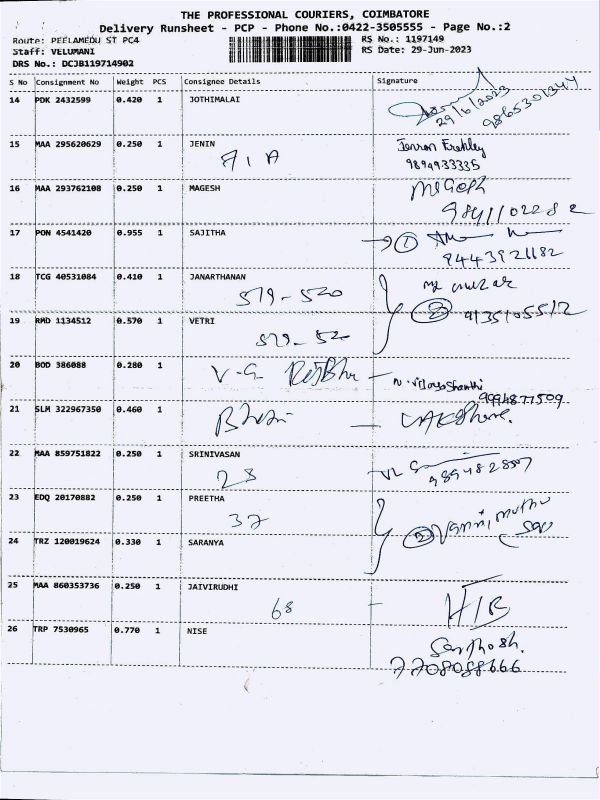 THE PROFESSIONAL COURIERS, COIMBATORE
Delivery Runsheet - PCP - Phone No.:0422-3505555 - Page No.:2
Route: PEELAMEDU ST PC4 RS No.: 1197149
Staff: VELUMANI RS Date: 29-Jun-2023
DRS No.: DCJB119714902
S No Consignment No Weight PCS Consignee Details Signature
14 PDK 2432599 0.420 1 JOTHIMALAI
29/6/2023 9865301344
15 MAA 295620629 0.250 1 JENIN
71A
9894933335
16 MAA 293762108 0.250 1 MAGESH Magesh
9841102282
17 PON 4541420 0.955 1 SAJITHA
①
9443921182
18 TCG 40531084 0.410 1 JANARTHANAN
519-520 ②
19 RMD 1134512 0.570 1 VETRI
519-52
20 BOD 386088 0.280 1
V-G
9994877509
21 SLM 322967350 0.460 1
22 MAA 859751822 0.250 1 SRINIVASAN
28 9894828507
23 EDQ 20170882 0.250 1 PREETHA
37 ②
24 TRZ 120019624 0.330 1 SARANYA
25 MAA 860353736 0.250 1 JAIVIRUDHI
68 - H/B
26 TRP 7530965 0.770 1 NISE
Santhosh.
7708088666